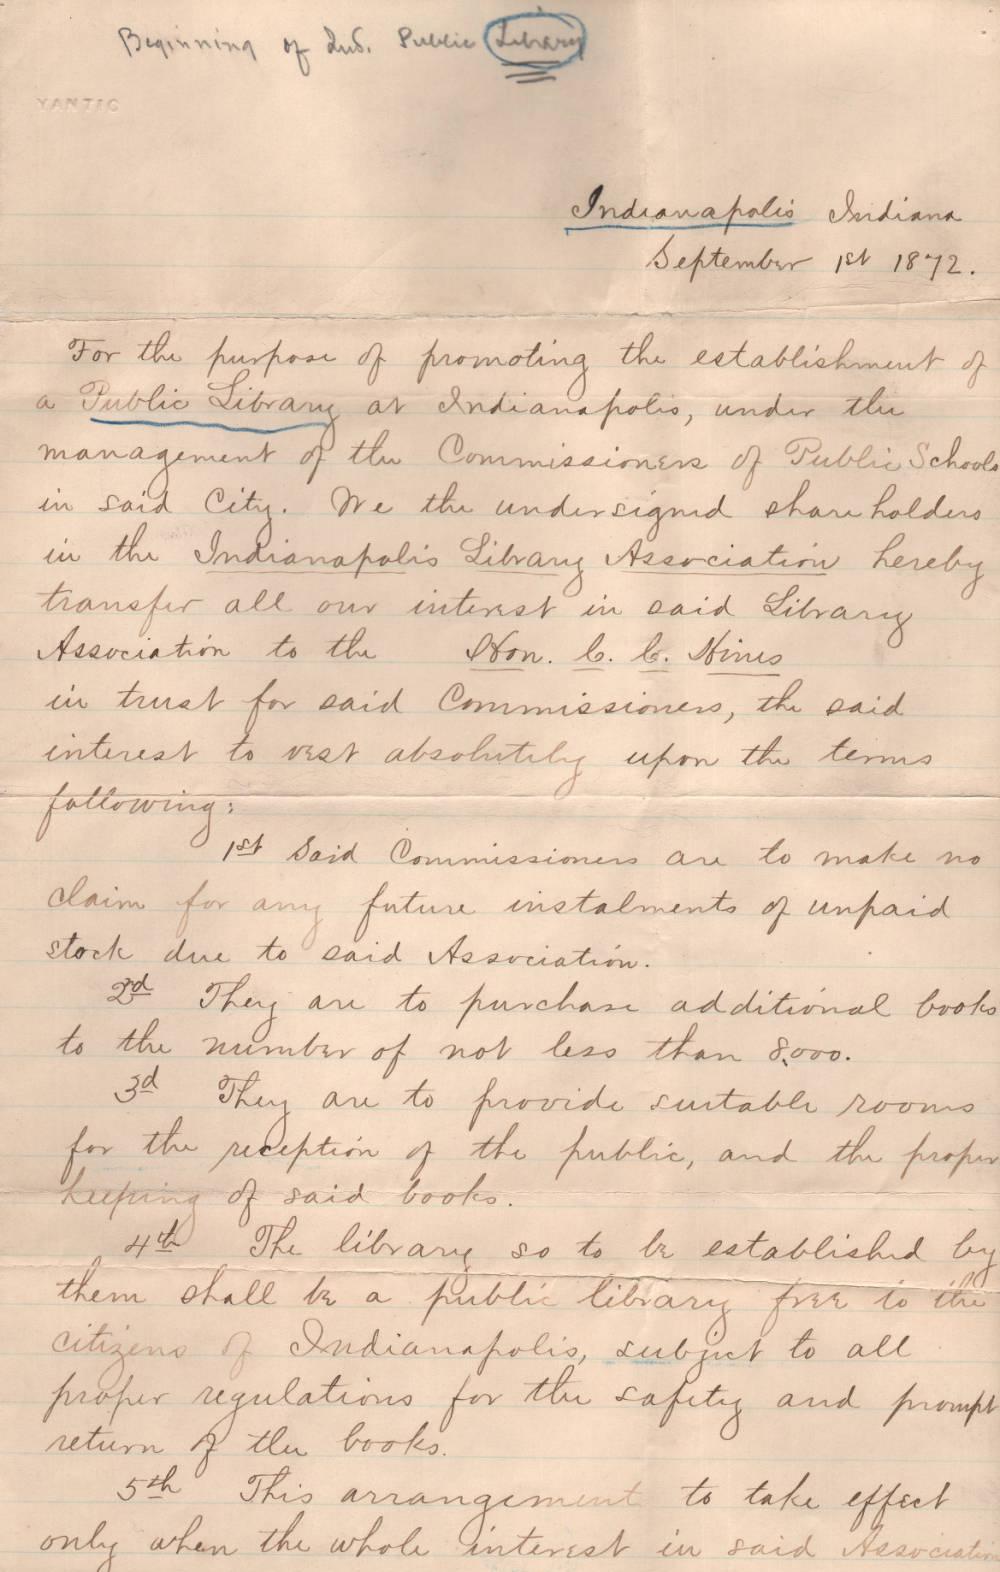 Beginning of Ind. Public Library
YANTIC
Indianapolis Indiana
September 1st 1872.
For the purpose of promoting the establishment of
a Public Library at Indianapolis, under the
management of the Commissioners of Public Schools
in said City. We the undersigned share holders
in the Indianapolis Library Association hereby
transfer all our interest in said Library
Association to the Hon. C. C. Hines
in trust for said Commissioners, the said
interest to vest absolutely upon the terms
following:
1st Said Commissioners are to make no
claim for any future instalments of unpaid
stock due to said Association.
2d They are to purchase additional books
to the number of not less than 8,000.
3d They are to provide suitable rooms
for the reception of the public, and the proper
keeping of said books.
4th The library so to be established by
them shall be a public library free to the
citizens of Indianapolis, subject to all
proper regulations for the safety and prompt
return of the books.
5th This arrangement to take effect
only when the whole interest in said Association